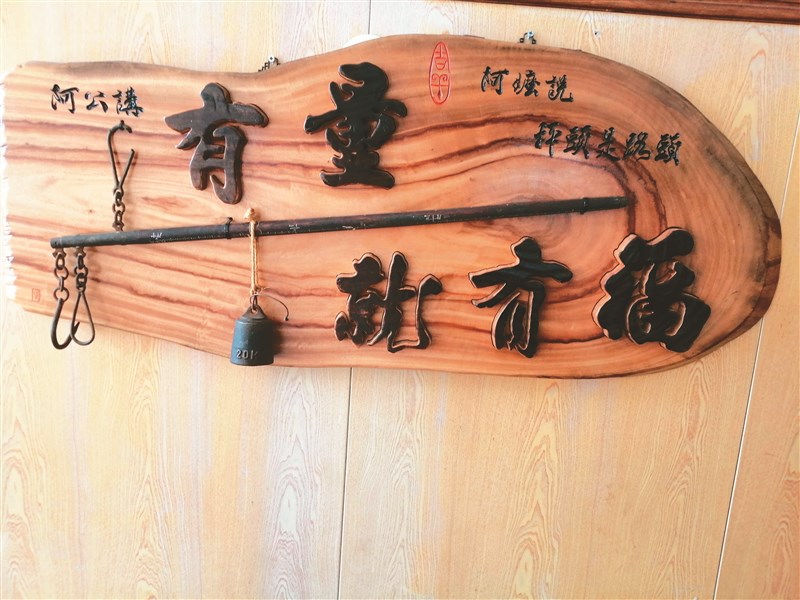 阿公講
有量
就有福
阿嬤說
秤頭是路頭
201